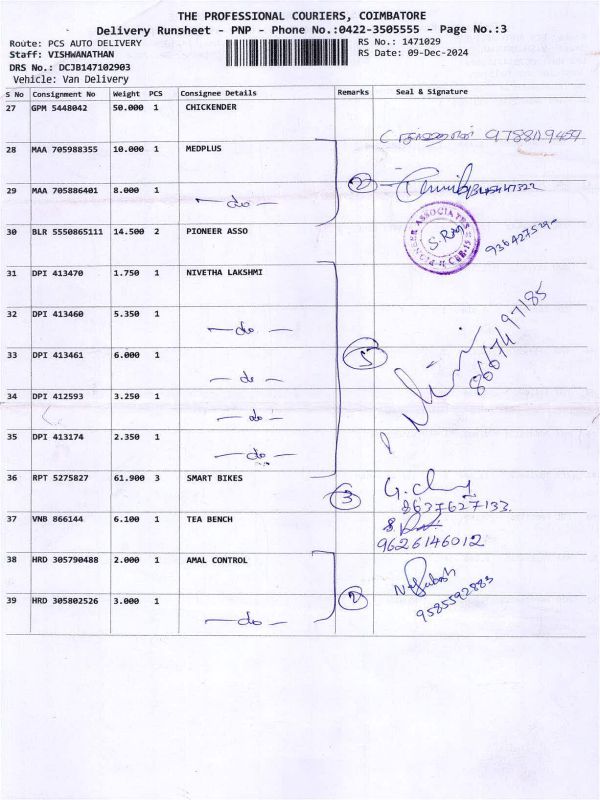 THE PROFESSIONAL COURIERS, COIMBATORE
Delivery Runsheet - PNP - Phone No.:0422-3505555 - Page No.:3
Route: PCS AUTO DELIVERY RS No.: 1471029
Staff: VISHWANATHAN RS Date: 09-Dec-2024
DRS No.: DCJB147102903
Vehicle: Van Delivery
S No Consignment No Weight PCS Consignee Details Remarks Seal & Signature
27 GPM 5448042 50.000 1 CHICKENDER
28 MAA 705988355 10.000 1 MEDPLUS
29 MAA 705886401 8.000 1 — do — 2
30 BLR 5550865111 14.500 2 PIONEER ASSO
PIONEER ASSOCIATES
S. Ram
31 DPI 413470 1.750 1 NIVETHA LAKSHMI
32 DPI 413460 5.350 1 — do —
33 DPI 413461 6.000 1 — do — 5 8667497185
34 DPI 412593 3.250 1 — do —
35 DPI 413174 2.350 1 — do —
36 RPT 5275827 61.900 3 SMART BIKES 3
8637627133
37 VNB 866144 6.100 1 TEA BENCH
9626146012
38 HRD 305790488 2.000 1 AMAL CONTROL
39 HRD 305802526 3.000 1 — do — 2 9585592883